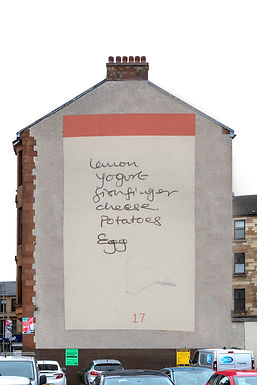 lemon
yogurt
fishfinger
cheese
potatoes
Egg
17